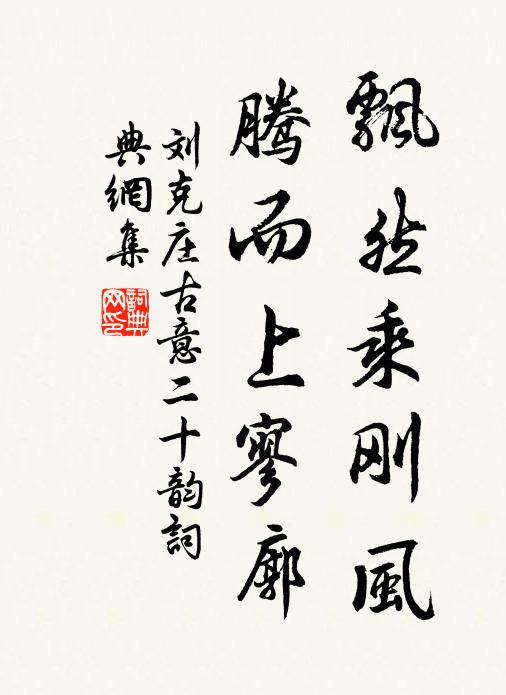 飄然乘刚風
腾而上寥廓
刘克庄古意二十韵詞
典網集
詞典
网印